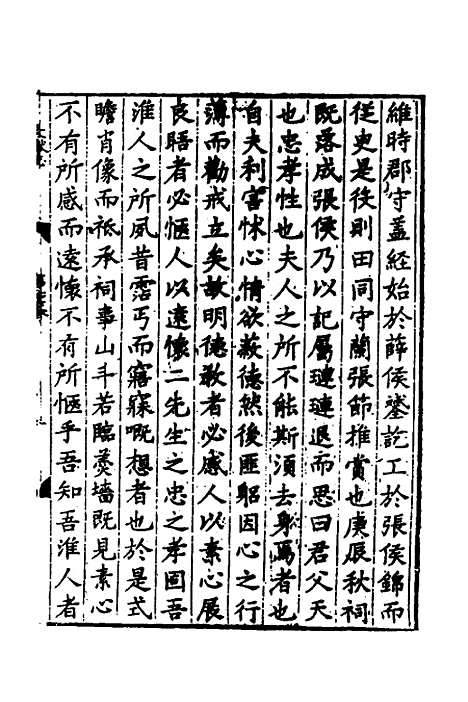 維時郡守蓋經始於薛侯鎏訖工於張侯錦而
從史是役則田同守蘭張節推賞也庚辰秋祠
既落成張侯乃以記屬璉璉退而思曰君父天
也忠孝性也夫人之所不能斯須去身焉者也
自夫利害怵心情欲蔽德然後匪躬因心之行
薄而勸戒立矣故明德敦者必感人以素心展
良晤者必愜人以遠懷二先生之忠之孝固吾
淮人之所夙昔霑丐而寤寐嘅想者也於是式
瞻肖像而祗承祠事山斗若臨羹墻既見素心
不有所感而遠懷不有所愜乎吾知吾淮人者